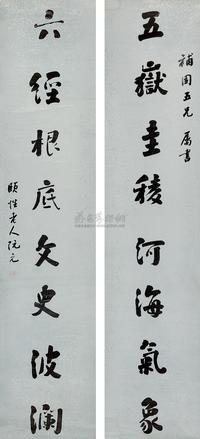 補園五兄屬書
五嶽圭稜河海氣象
六經根底文史波瀾
頤性老人阮元